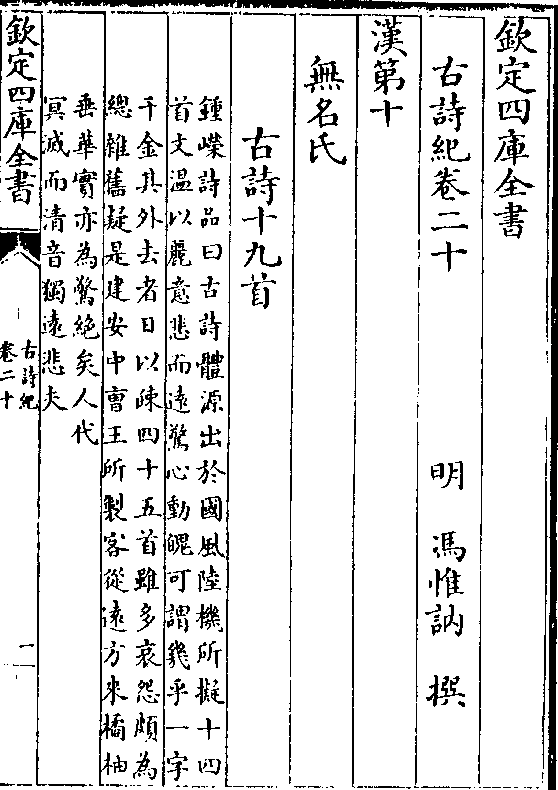 欽定四庫全書
古詩紀卷二十
明 馮惟訥 撰
漢第十
無名氏
古詩十九首
鍾嶸詩品曰古詩體源出於國風陸機所擬十四
首文温以麗意悲而遠驚心動魄可謂幾乎一字
千金其外去者日以疎四十五首雖多哀怨頗為
總雜舊疑是建安中曹王所製客從遠方來橘柚
垂華實亦為驚絶矣人代
冥滅而清音獨遠悲夫
欽定四庫全書
古詩紀
卷二十
一